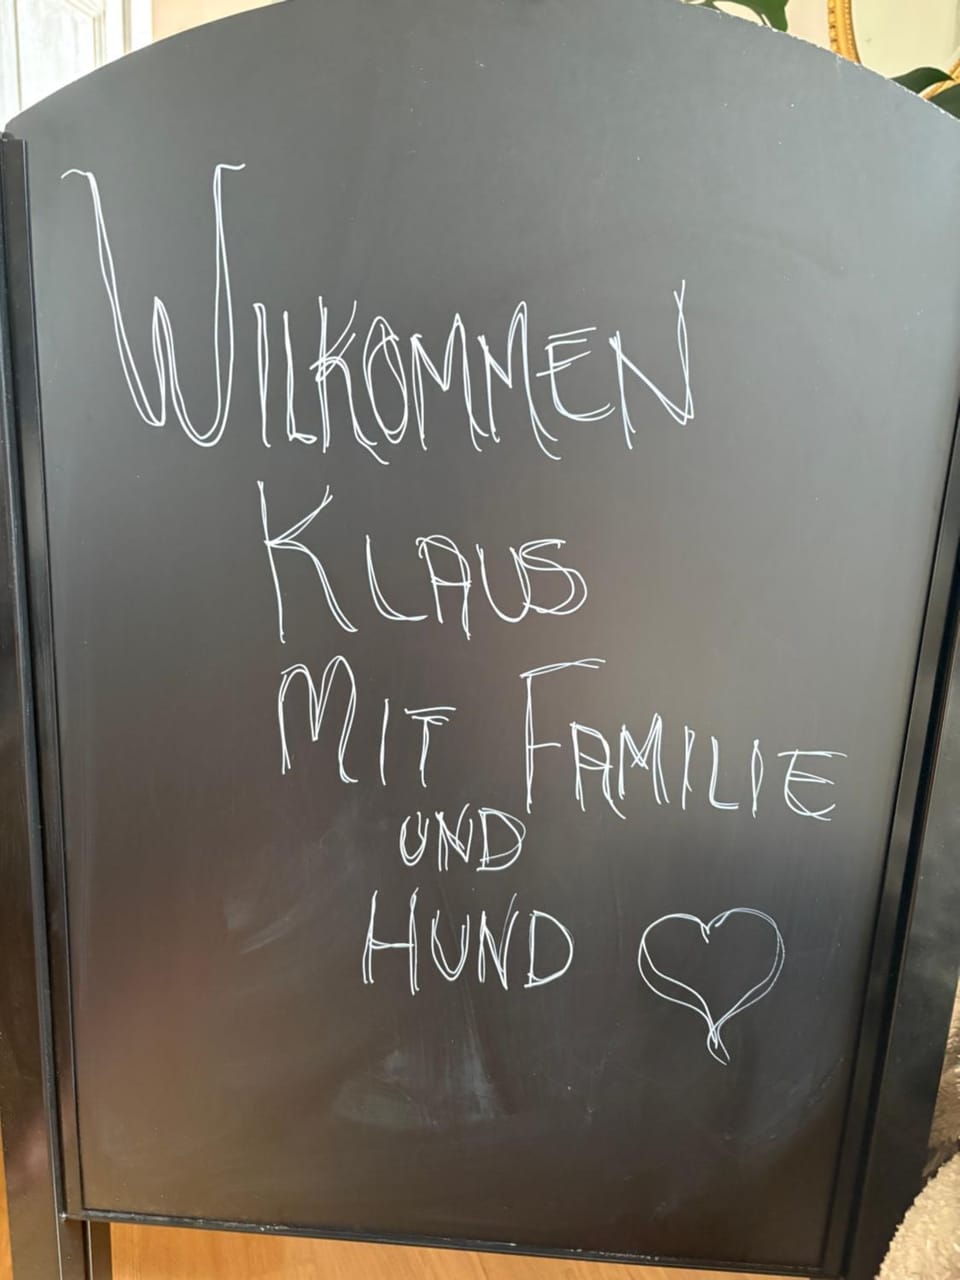 WILKOMMEN
KLAUS
MIT FAMILIE
UND
HUND